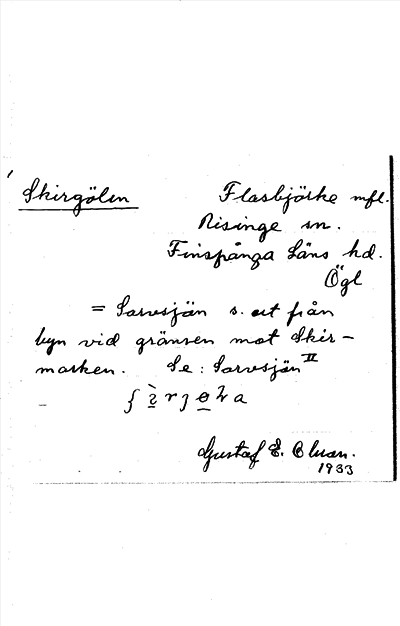 Skirgölen Flasbjörke mfl.
Risinge sn.
Finspånga Läns hd.
Ögl
= Sarvsjön s. ut från
byn vid gränsen mot Skir-
marken. Se: Sarvsjön II
Gustaf E. Olson.
1933